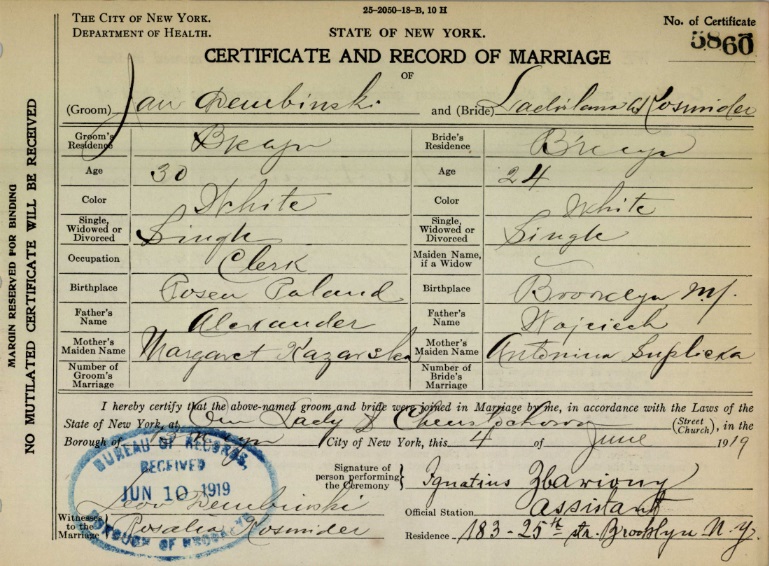 25-2050-18-B, 10 H
THE CITY OF NEW YORK.
DEPARTMENT OF HEALTH.
STATE OF NEW YORK.
No. of Certificate
5860
CERTIFICATE AND RECORD OF MARRIAGE
OF
(Groom) Jan Dembinski and (Bride) Kosmider
Groom's Residence Bklyn Bride's Residence Bklyn
Age 30 Age 24
Color White Color White
Single, Widowed or Divorced Single Single, Widowed or Divorced Single
Occupation Clerk Maiden Name, if a Widow
Birthplace Posen Poland Birthplace Brooklyn N.Y.
Father's Name Alexander Father's Name Wojciech
Mother's Maiden Name Margaret Kazarska Mother's Maiden Name Antonina Suplicka
Number of Groom's Marriage Number of Bride's Marriage
I hereby certify that the above-named groom and bride were joined in Marriage by me, in accordance with the Laws of the
State of New York, at Our Lady of Czenstochowa (Street Church), in the
Borough of Bklyn City of New York, this 4 of June 1919
Signature of person performing the Ceremony Ignatius
Official Station Assistant
Residence 183-25th str. Brooklyn N.Y.
Witnesses to the Marriage Leon Dembinski
Rosalia Kosmider
BUREAU OF RECORDS.
RECEIVED
JUN 10 1919
BOROUGH OF BROOKLYN
MARGIN RESERVED FOR BINDING
NO MUTILATED CERTIFICATE WILL BE RECEIVED